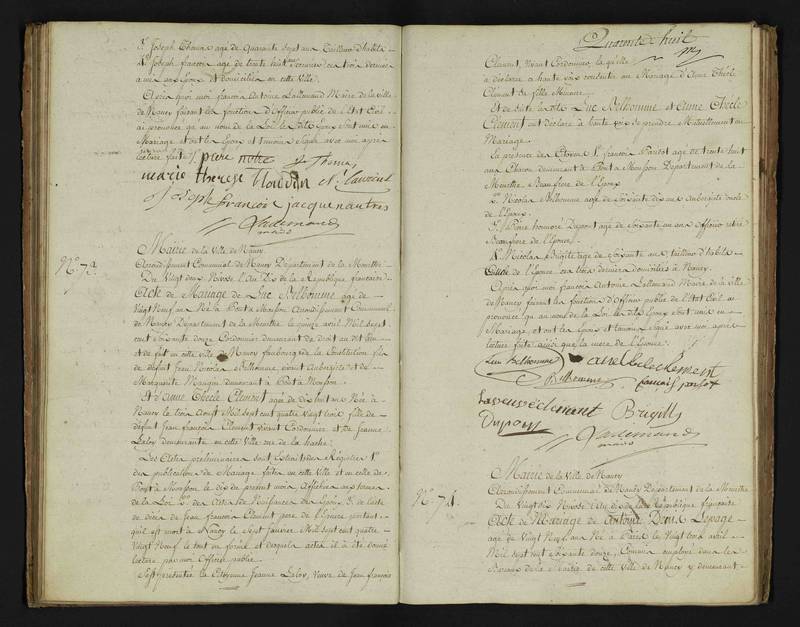 Joseph Thomas agé de Quarante Sept ans Tailleur d'habits
Joseph françois agé de trente huit ans
amis des Epoux et domiciliés en cette ville.
Après quoi moi françois Antoine Lallemand Maire de la ville
de Nancy faisant les fonction d'Officier public de l'Etat Civil ai
prononcé qu'au nom de la Loi les dits Epoux sont unis en
Mariage et ont les Epoux et temoins Signé avec moi après
lecture faite
pierre
marie therese houdin
joseph françois jacque nautres
Lallemand
maire
N°. 73.
Mairie de la Ville de Nancy
Arrondissement Communal de Nancy Département de la Meurthe
Du Vingt deux Nivose l'An Dix de la République française
Acte de Mariage de Luc Bellhomme agé de
Vingt Neuf ans Né à Pont à Mousson Arrondissement Communal
de Nancy Département de la Meurthe le quinze avril Mil Sept
cent Soixante douze Cordonnier demeurant de droit au dit lieu
et de fait en cette ville de Nancy faubourg de la Constitution fils
de défunt Jean Nicolas Bellhomme vivant Aubergiste et de
Marguerite Mangin demeurant à Pont à Mousson.
Et d'Anne Thècle Clement agée de dix huit ans Née à
Nancy le trois Août Mil Sept cent quatre Vingt trois fille de
défunt Jean françois Clement vivant Cordonnier et de Jeanne
Laloy demeurante en cette Ville rue de la hache.
Les Actes préliminaires sont Extraits des Régistres 1°.
des publications de Mariage faites en cette Ville et en celle de
Pont à Mousson le dix du présent mois Affichées aux termes
de la Loi 2°. des Actes de Naissances des Epoux 3°. de l'acte
de décès de Jean françois Clement pere de l'Epouse portant
qu'il est mort à Nancy le Sept Janvier Mil Sept cent quatre
Vingt Neuf le tout en forme et desquels actes il a été donné
lecture par moi Officier public.
S'est présentée la Citoyenne Jeanne Laloy, Veuve de Jean françois
Quarante huit
Clement, vivant Cordonnier, laquelle
a déclaré à haute voix consentir au Mariage d'Anne Thècle
Clement sa fille Mineure.
Et de Suite lesdits Luc Bellhomme et Anne Thècle
Clement ont déclaré à haute voix se prendre Mutuellement en
Mariage.
En présence des Citoyens 1°. françois Parisot agé de trente huit
ans Charon demeurant à Pont à Mousson Département de la
Meurthe Beau frere de l'Epoux
2°. Nicolas Bellhomme agé de soixante dix ans Aubergiste oncle
de l'Epoux.
3°. Pierre honnoré Dupont agé de soixante un ans Officier retiré
Beau frere de l'Epouse
4°. Nicolas Brigitte agé de soixante ans tailleur d'habits
Oncle de l'Epouse ces trois derniers domiciliés à Nancy.
Après quoi moi françois Antoine Lallemand Maire de la Ville
de Nancy faisant les fonction d'Officier public de l'Etat Civil ai
prononcé qu'au nom de la Loi les dits Epoux sont unis en
Mariage, et ont les Epoux et temoins Signé avec moi après
lecture faite ainsi que la mere de l'Epouse.
Luc Bellhomme anne tecle clement
N Bellhomme francois parisot
la veuve clement
Dupont Lallemand
maire
N°. 74.
Mairie de la Ville de Nancy
Arrondissement Communal de Nancy Département de la Meurthe
Du Vingt trois Nivose An dix de la République française
Acte de Mariage de Antoine Denis Lepage
agé de Vingt Neuf ans Né à Paris le Vingt trois avril
Mil Sept cent Soixante douze, Commis employé dans les
Bureaux de la Mairie de cette Ville de Nancy y demeurant